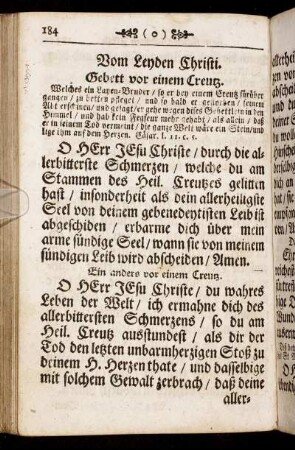 184 ( o )
Vom Leyden Christi.
Gebett vor einem Creutz.
Welches ein Layen-Bruder / so er bey einem Creutz fürüber
gangen / zu betten pfleget / und so bald er gestorben / seinem
Abt erschienen / und gesagt / er gehe wegen dieses Gebettl / in den
Himmel / und hab kein Fegfeur mehr gehabt / als allein / daß
er in seinem Tod vermeint / die gantze Welt wäre ein Stein / und
lige ihm auf dem Herzen. Cäsar. l. 11. c. 5.
O HErr JEsu Christe / durch die al-
lerbitterste Schmerzen / welche du am
Stammen des Heil. Creutzes gelitten
hast / insonderheit als dein allerheiligste
Seel von deinem gebenedeytisten Leib ist
abgeschiden / erbarme dich über mein
arme sündige Seel / wann sie von meinem
sündigen Leib wird abscheiden / Amen.
Ein anders vor einem Creutz.
O HErr JEsu Christe / du wahres
Leben der Welt / ich ermahne dich des
allerbittersten Schmerzens / so du am
Heil. Creutz ausstundest / als dir der
Tod den letzten unbarmherzigen Stoß zu
deinem H. Herzen thate / und dasselbige
mit solchem Gewalt zerbrach / daß deine
aller-